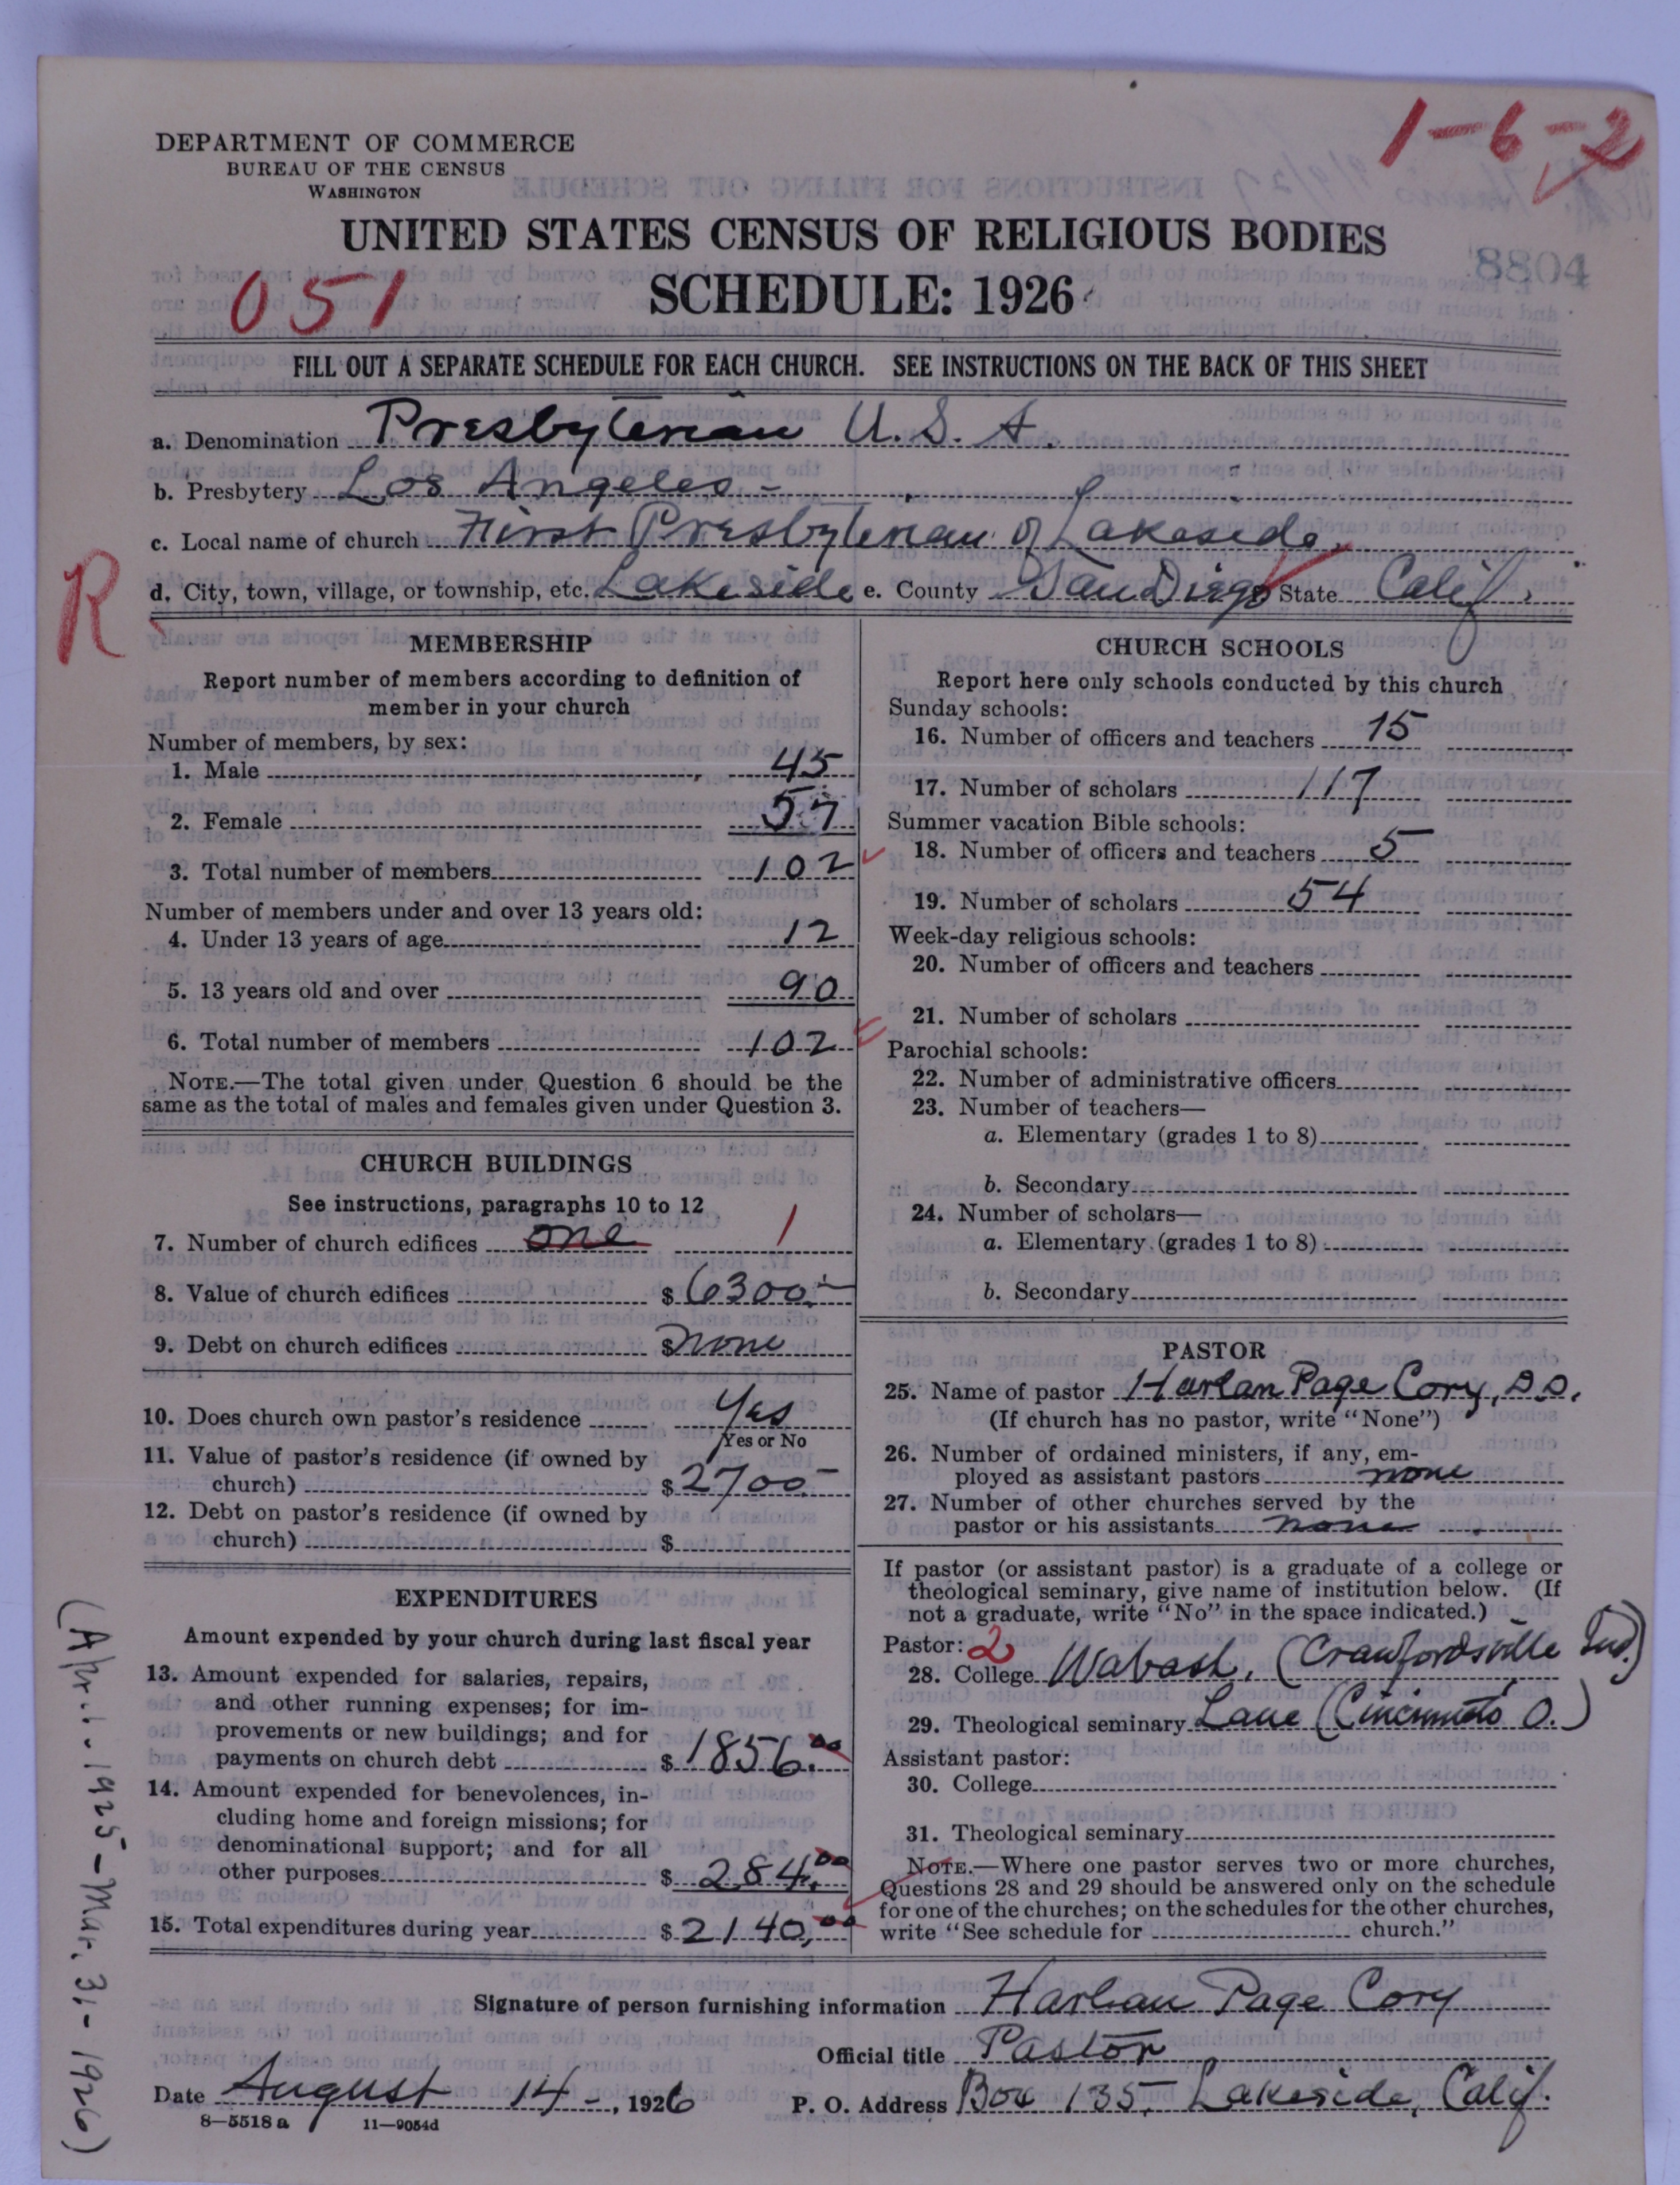 1-6-2
DEPARTMENT OF COMMERCE
BUREAU OF THE CENSUS
WASHINGTON
UNITED STATES CENSUS OF RELIGIOUS BODIES
8804
051
SCHEDULE: 1926
FILL OUT A SEPARATE SCHEDULE FOR EACH CHURCH. SEE INSTRUCTIONS ON THE BACK OF THIS SHEET
a. Denomination Presbyterian U. S. A.
b. Presbytery Los Angeles -
c. Local name of church First Presbyterian of Lakeside,
R
d. City, town, village, or township, etc. Lakeside e. County San Diego State Calif.
MEMBERSHIP
Report number of members according to definition of
member in your church
Number of members, by sex:
1. Male 45
2. Female 57
3. Total number of members 102
Number of members under and over 13 years old:
4. Under 13 years of age 12
5. 13 years old and over 90
6. Total number of members 102
NOTE.—The total given under Question 6 should be the
same as the total of males and females given under Question 3.
CHURCH BUILDINGS
See instructions, paragraphs 10 to 12
7. Number of church edifices one 1
8. Value of church edifices $ 6300.-
9. Debt on church edifices $ none
10. Does church own pastor's residence Yes
Yes or No
11. Value of pastor's residence (if owned by
church) $ 2700-
12. Debt on pastor's residence (if owned by
church) $
EXPENDITURES
Amount expended by your church during last fiscal year
13. Amount expended for salaries, repairs,
and other running expenses; for im-
provements or new buildings; and for
payments on church debt $ 1856.00
14. Amount expended for benevolences, in-
cluding home and foreign missions; for
denominational support; and for all
other purposes $ 284.00
15. Total expenditures during year $ 2140.00
(Apr. 1. 1925 - Mar. 31 - 1926)
CHURCH SCHOOLS
Report here only schools conducted by this church
Sunday schools:
16. Number of officers and teachers 15
17. Number of scholars 117
Summer vacation Bible schools:
18. Number of officers and teachers 5
19. Number of scholars 54
Week-day religious schools:
20. Number of officers and teachers
21. Number of scholars
Parochial schools:
22. Number of administrative officers
23. Number of teachers—
a. Elementary (grades 1 to 8)
b. Secondary
24. Number of scholars—
a. Elementary (grades 1 to 8)
b. Secondary
PASTOR
25. Name of pastor Harlan Page Cory, D.D.
(If church has no pastor, write "None")
26. Number of ordained ministers, if any, em-
ployed as assistant pastors none
27. Number of other churches served by the
pastor or his assistants none
If pastor (or assistant pastor) is a graduate of a college or
theological seminary, give name of institution below. (If
not a graduate, write "No" in the space indicated.)
Pastor: 2
28. College Wabash, (Crawfordsville Ind.)
29. Theological seminary Lane (Cincinnati O.)
Assistant pastor:
30. College
31. Theological seminary
NOTE.—Where one pastor serves two or more churches,
Questions 28 and 29 should be answered only on the schedule
for one of the churches; on the schedules for the other churches,
write "See schedule for church."
Signature of person furnishing information Harlan Page Cory
Official title Pastor
Date August 14-, 1926 P. O. Address Box 135, Lakeside, Calif.
8—5518 a 11—9054d